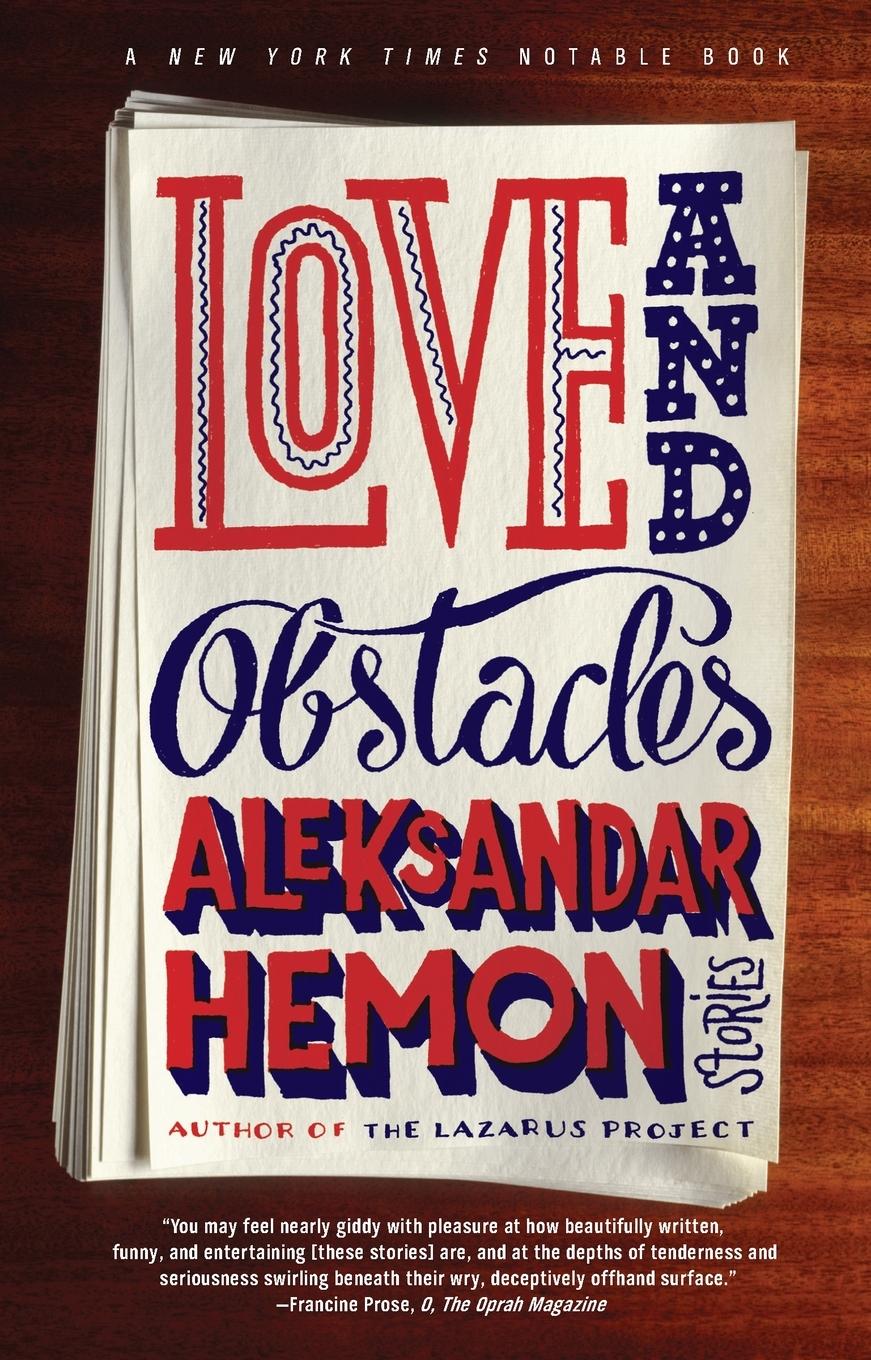 A NEW YORK TIMES NOTABLE BOOK
LOVE AND
Obstacles
ALEKSANDAR
HEMON
STORIES
AUTHOR OF THE LAZARUS PROJECT
“You may feel nearly giddy with pleasure at how beautifully written,
funny, and entertaining [these stories] are, and at the depths of tenderness and
seriousness swirling beneath their wry, deceptively offhand surface.”
—Francine Prose, O, The Oprah Magazine